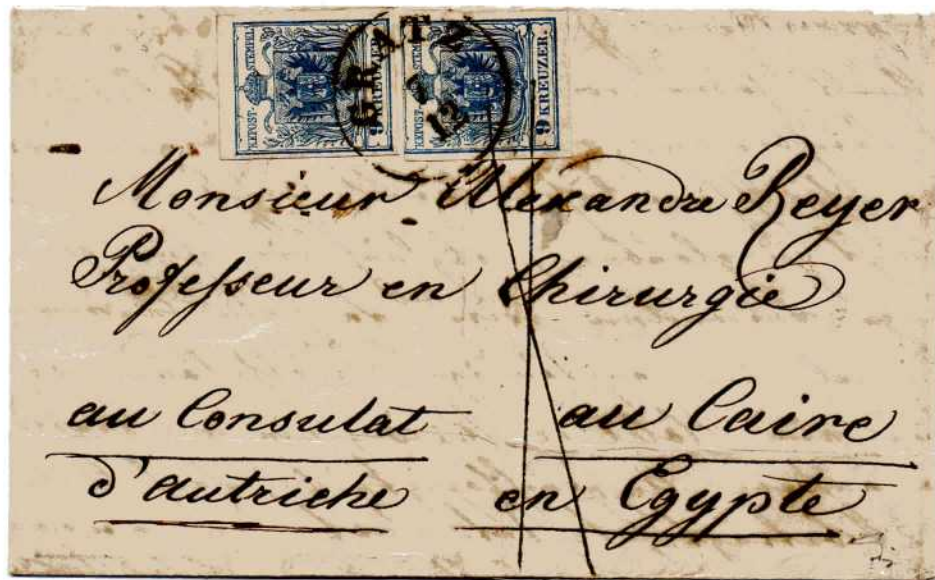 KKPOST-STEMPEL 9 KREUZER. KKPOST-STEMPEL 9 KREUZER.
GRATZ
12
Monsieur Alexandre Reyer
Professeur en Chirurgie
au Consulat au Caire
d'autriche en Egypte